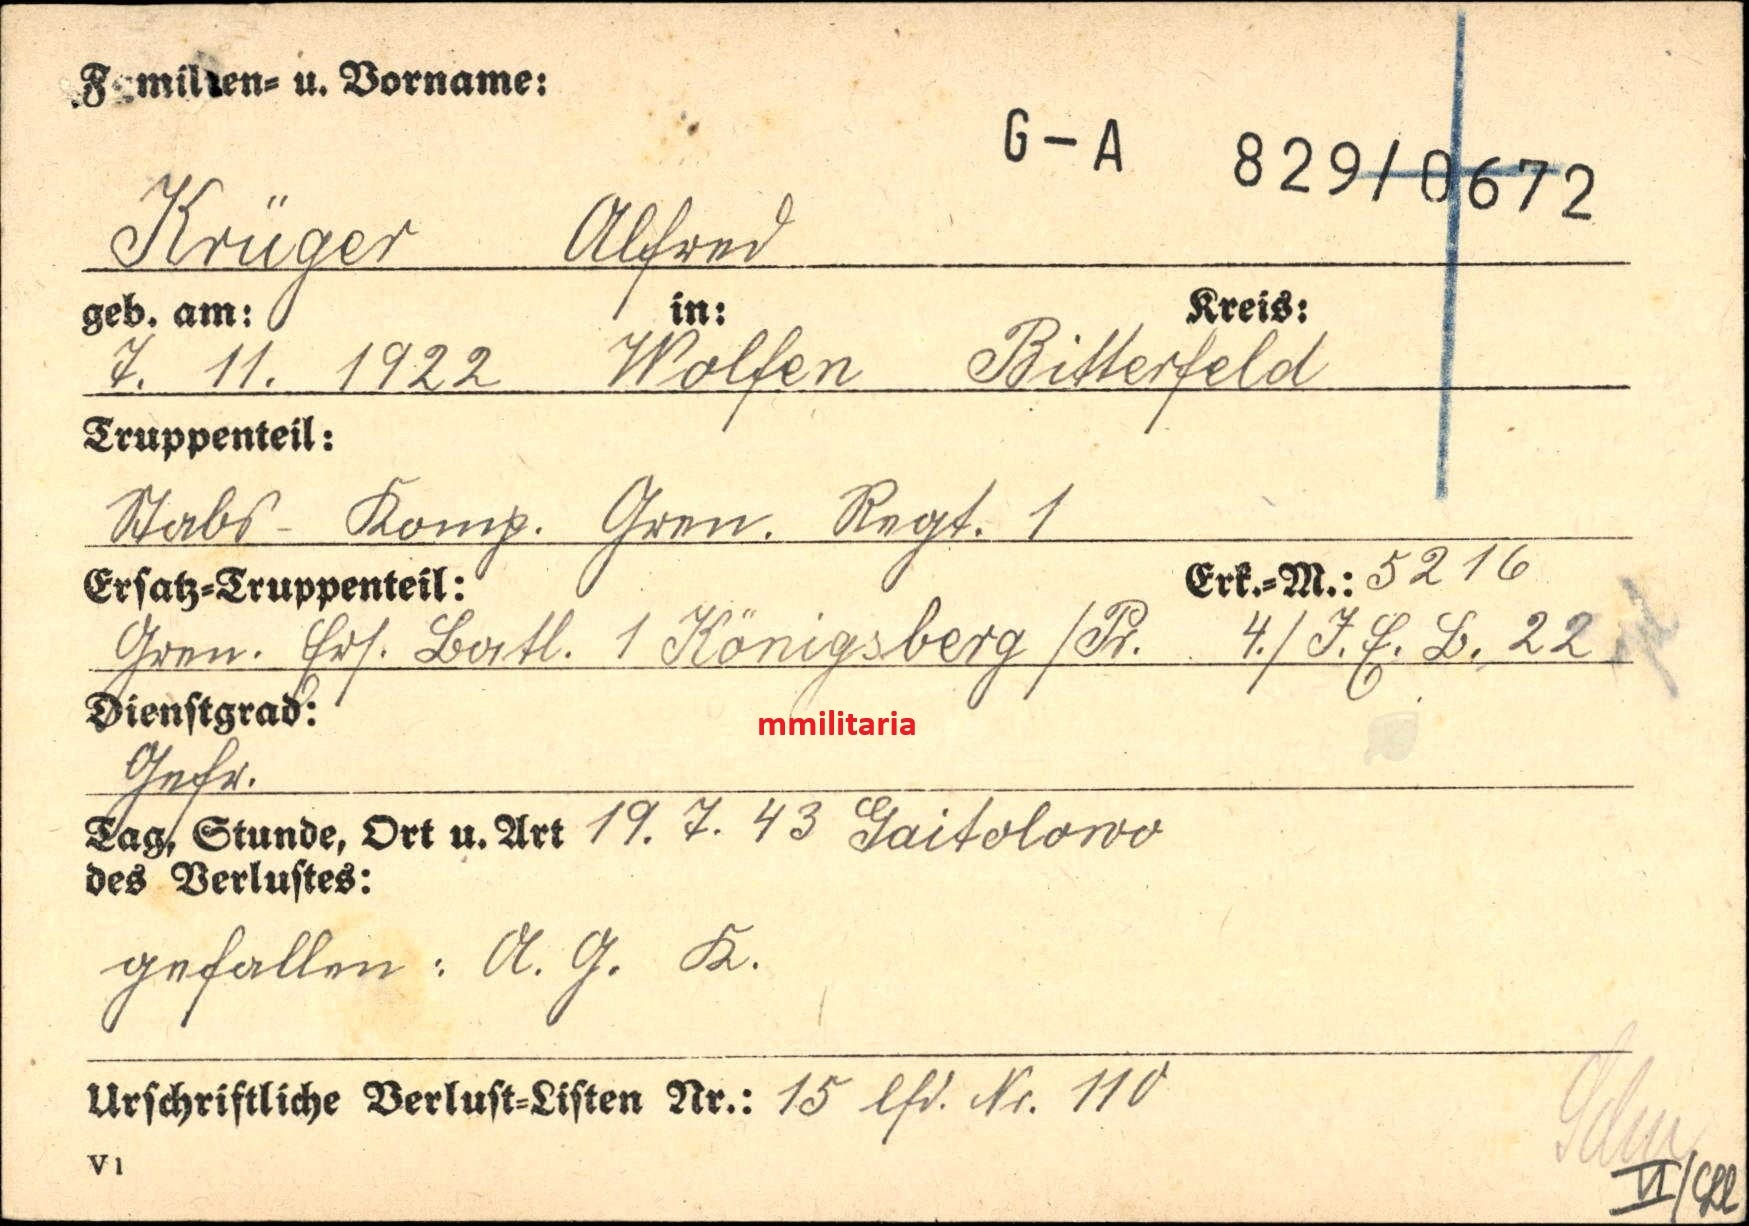 Familien- u. Vorname:
G-A 829/0672
Krüger Alfred
geb. am: in: Kreis:
7. 11. 1922 Wolfen Bitterfeld
Truppenteil:
Stabs- Komp. Gren. Regt. 1
Ersatz-Truppenteil: Erk.-M.: 5216
Gren. Ers. Batl. 1 Königsberg /Pr. 4./ J. E. B. 22
Dienstgrad:
mmilitaria
Gefr.
Tag, Stunde, Ort u. Art 19. 7. 43 Gaitolowo
des Verlustes:
gefallen: A. G. K.
Urschriftliche Verlust-Listen Nr.: 15 lfd. Nr. 110
V1
VI/